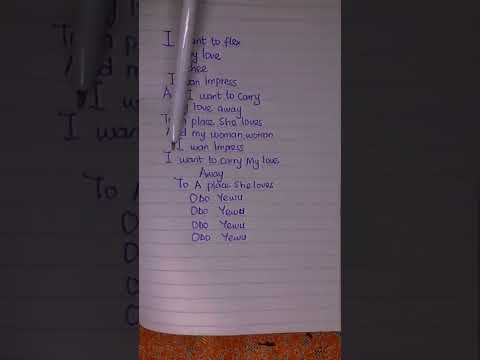 I want to flex
My love
I wan Impress
I want to Carry
love away
To place She loves
my woman, woman
I wan Impress
I want to Carry My love
Away
To A place She loves
ODO Yewu
ODO Yewu
ODO Yewu
ODO Yewu